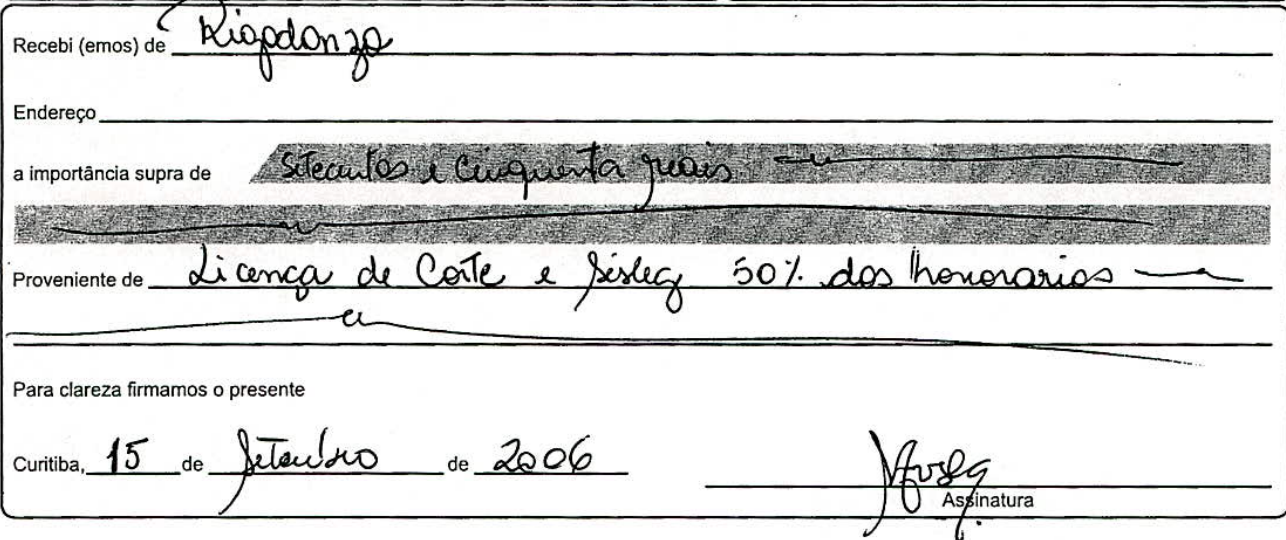 Recebi (emos) de
Endereço
a importância supra de setecentos e cinquenta reais
Proveniente de Licença de Corte e Sisleg 50% dos honorarios
Para clareza firmamos o presente
Curitiba, 15 de Setembro de 2006
Assinatura